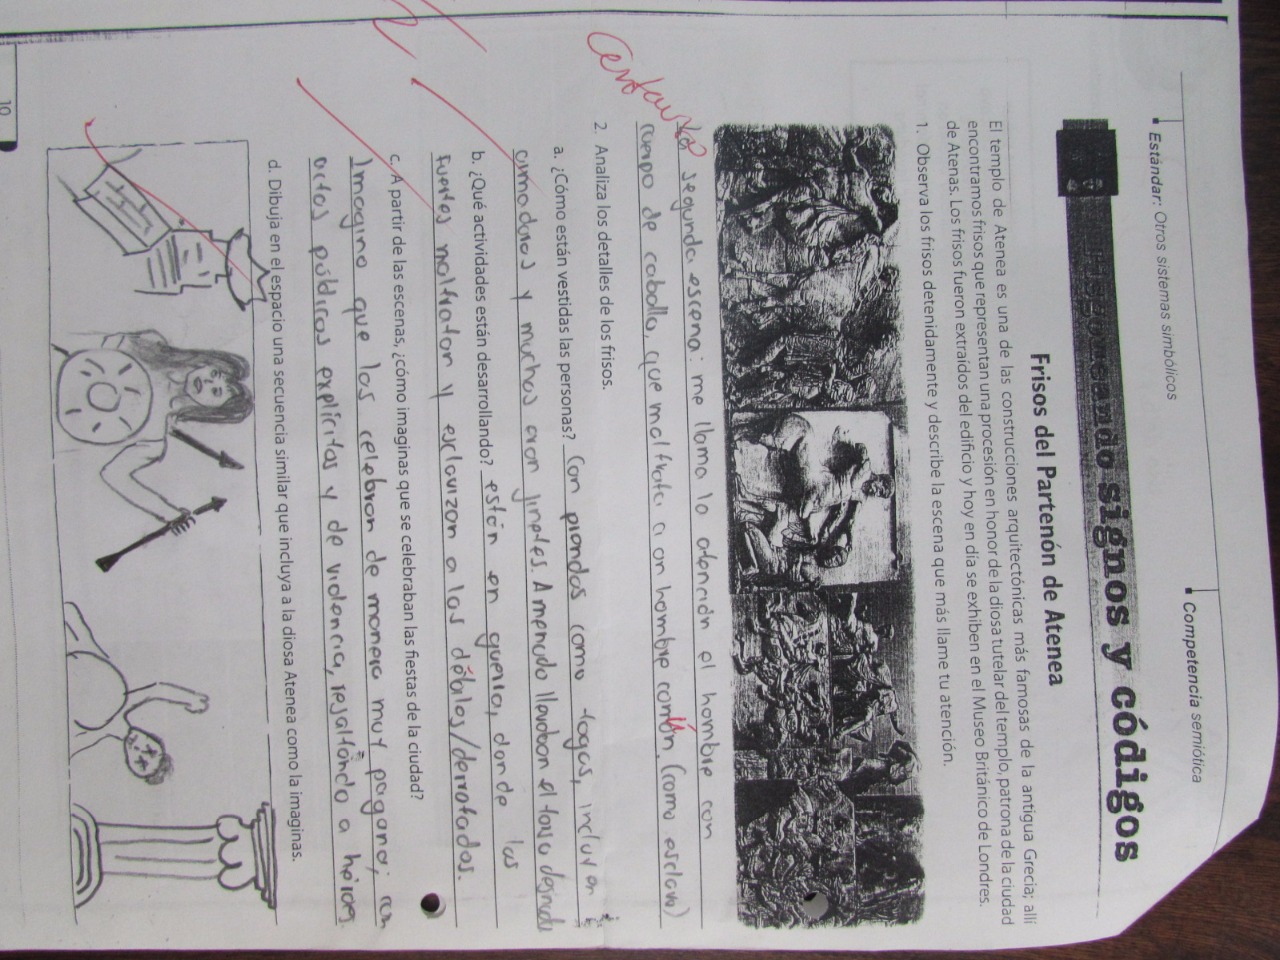 Estándar: Otros sistemas simbólicos
Competencia semiótica
signos y códigos
Frisos del Partenón de Atenea
El templo de Atenea es una de las construcciones arquitectónicas más famosas de la antigua Grecia; allí
encontramos frisos que representan una procesión en honor de la diosa tutelar del templo, patrona de la ciudad
de Atenas. Los frisos fueron extraídos del edificio y hoy en día se exhiben en el Museo Británico de Londres.
1. Observa los frisos detenidamente y describe la escena que más llame tu atención.
segunda escena: me llama la atención el hombre con
cuerpo de caballo, que maltrata a un hombre común. (como esclavo)
Centauro
2. Analiza los detalles de los frisos.
a. ¿Cómo están vestidas las personas? Con prendas como togas, incluyen
armaduras y muchos eran jinetes. A menudo llevaban el torso
b. ¿Qué actividades están desarrollando? están en guerra, donde los
fuertes maltratan y esclavizan a los débiles/derrotados.
c. A partir de las escenas, ¿cómo imaginas que se celebraban las fiestas de la ciudad?
Imagino que las celebran de manera muy pagana; con
actos públicos explícitos y de violencia, resaltando a héroes
d. Dibuja en el espacio una secuencia similar que incluya a la diosa Atenea como la imaginas.
10